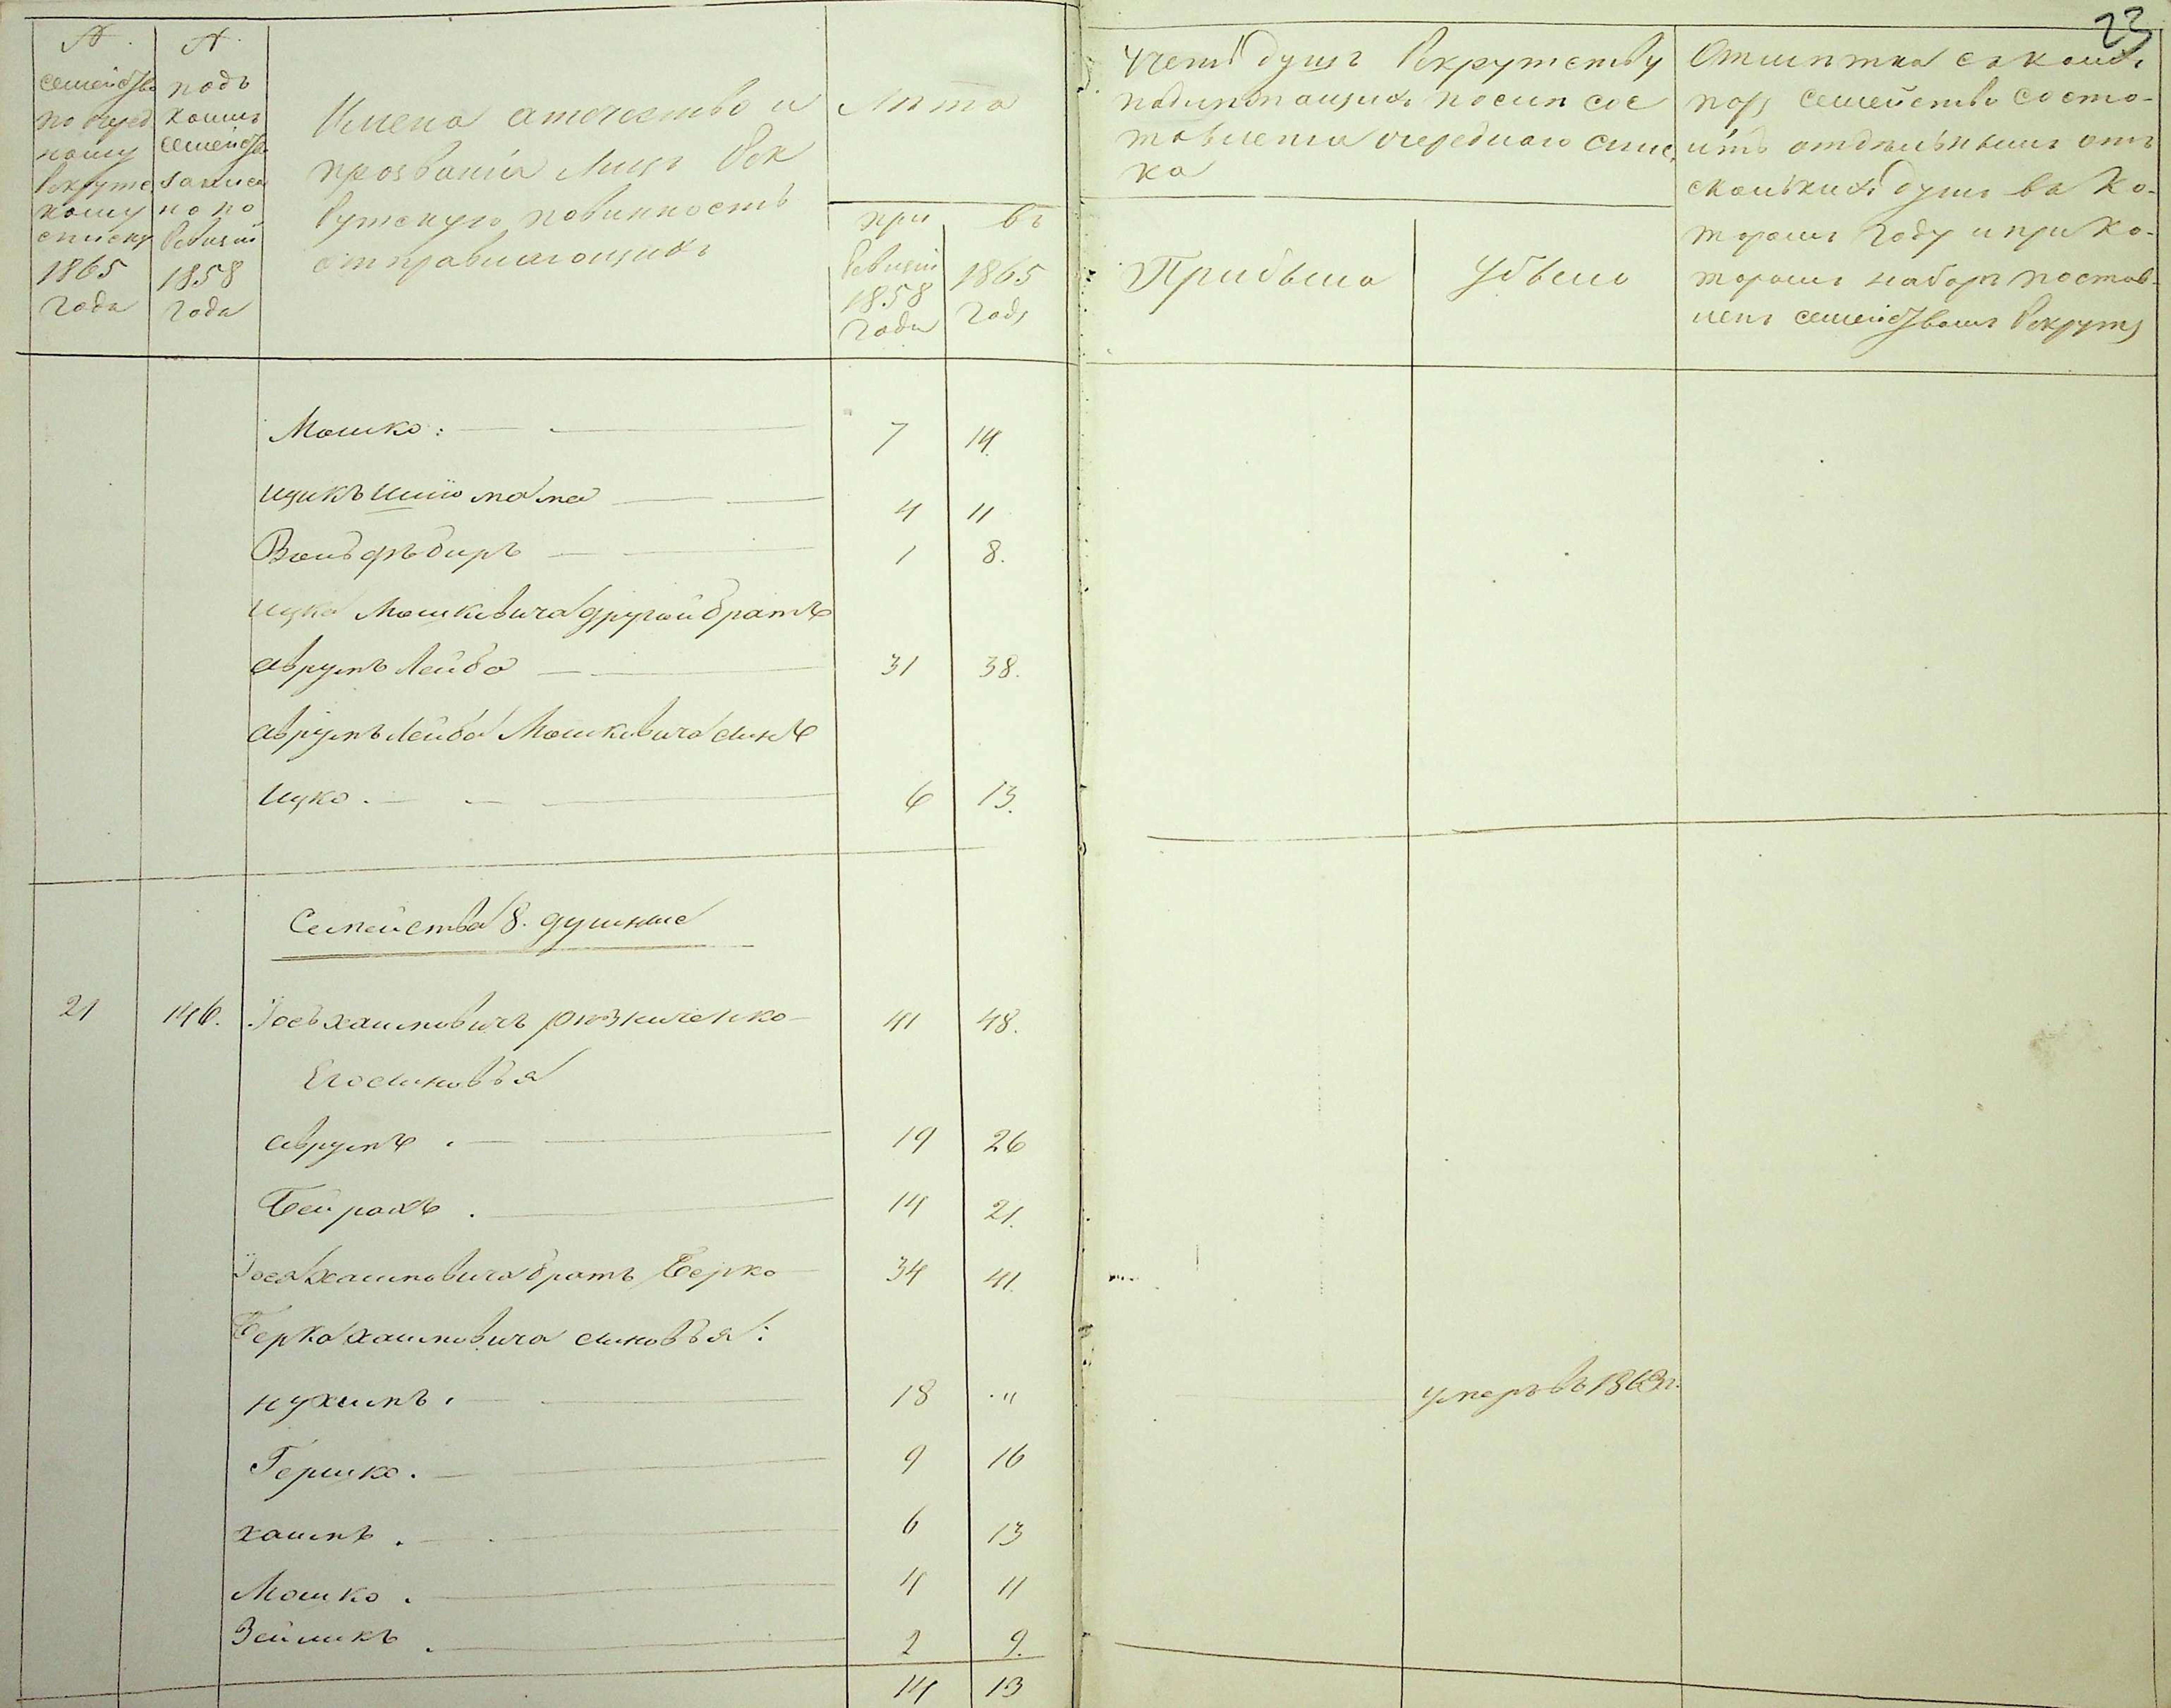 23
№.
семейства
по очеред
ному
рекрутс
кому
списку
1865
года
№.
подъ
коимъ
семейства
записан
но по
ревизіи
1858
года
Имена отечество и
прозванія лицъ рек
рутскую повинность
отправляющихъ
Лѣта
при
ревизіи
1858
года
въ
1865
году
Счетъ душъ рекрутству
подлежащихъ после сос
тавленія очереднаго спис
ка
Прибыло
Убыло
Отмѣтка съ какихъ
поръ семейство состо-
итъ отдѣльнымъ отъ
сколькихъ душъ въ ко-
торомъ году и при ко-
торомъ наборѣ постав-
ленъ семействомъ рекрутъ
Мошко: 7 14.
Ицикъ Шліома 4 11
Вольфъ Биръ 1 8.
Ицка Мошковича другой братъ
Аврумъ Лейба 31 38.
Аврумъ Лейба Мошковича сынъ
Ицко. 6 13.
Семейства 8. душные
21 146. Іось Хаимовичъ Рѣзниченко 41 48.
Его сыновья
Аврумъ. 19 26
Бейрахъ. 14 21.
Іося Хаимовича братъ Берко 34 41.
Берка Хаимовича сыновья:
Нухимъ. 18 " умеръ въ 1863 г.
Гершко. 9 16
Хаимъ. 6 13
Мошко. 4 11
Зейликъ. 2 9.
14 13